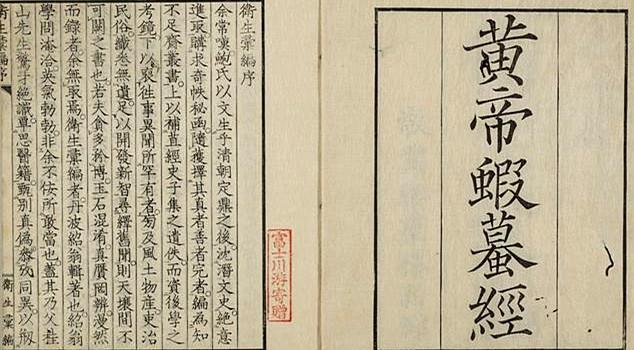 黃帝蝦蟇經
富士川游寄贈
衛生彙編序
余常嘆鮑氏以文生乎清朝定鼎之後沈潛文史絶意
進取購求奇帙秘函隨獲擇其真者善者完者編為知
不足齋叢書上以補苴經史子集之遺佚而資後學之
考鏡下以裒往事異聞所罕有者旁及風土物產吏治
民俗纖悉無遺足以開發新智尋繹舊聞則天壤間不
可闕之書也若夫貪多務博玉石混淆真贗罔辨漫然
而録者余無取焉衛生彙編者丹波紹翁輯著也紹翁
學問淹洽英氣勃勃非余不佞所敢當也蓋其乃父桂
山先生鷙才絶識覃思醫籍甄別真偽參攷同異以剏
衛生彙編序
衛生彙編